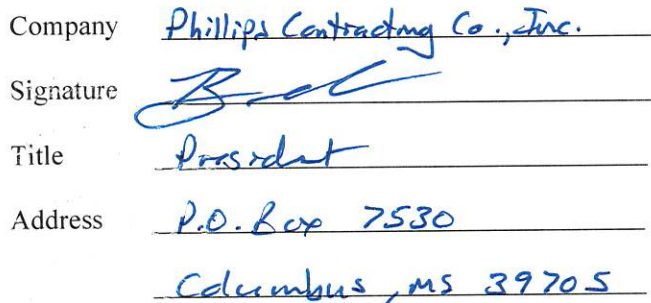 Company Phillips Contracting Co., Inc.
Signature
Title President
Address P.O. Box 7530
Columbus, MS 39705